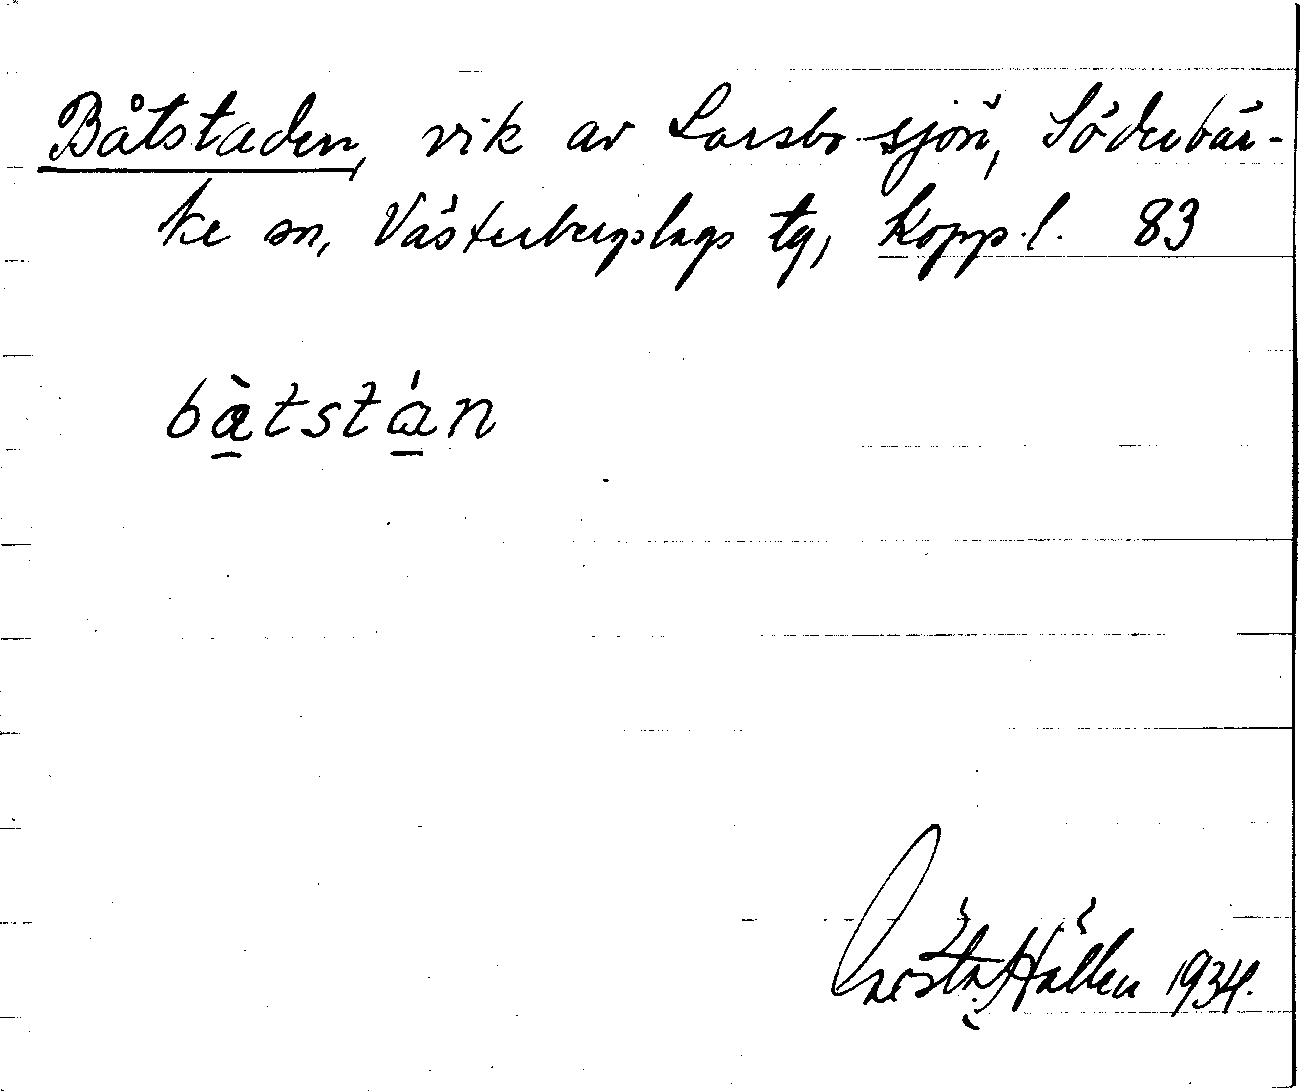 Båtstaden, vik av Larsbo-sjön, Söderbär-
ke sn, Västerbergslags tg, Kopp.l. 83
bàtstán
Hällen 1934.